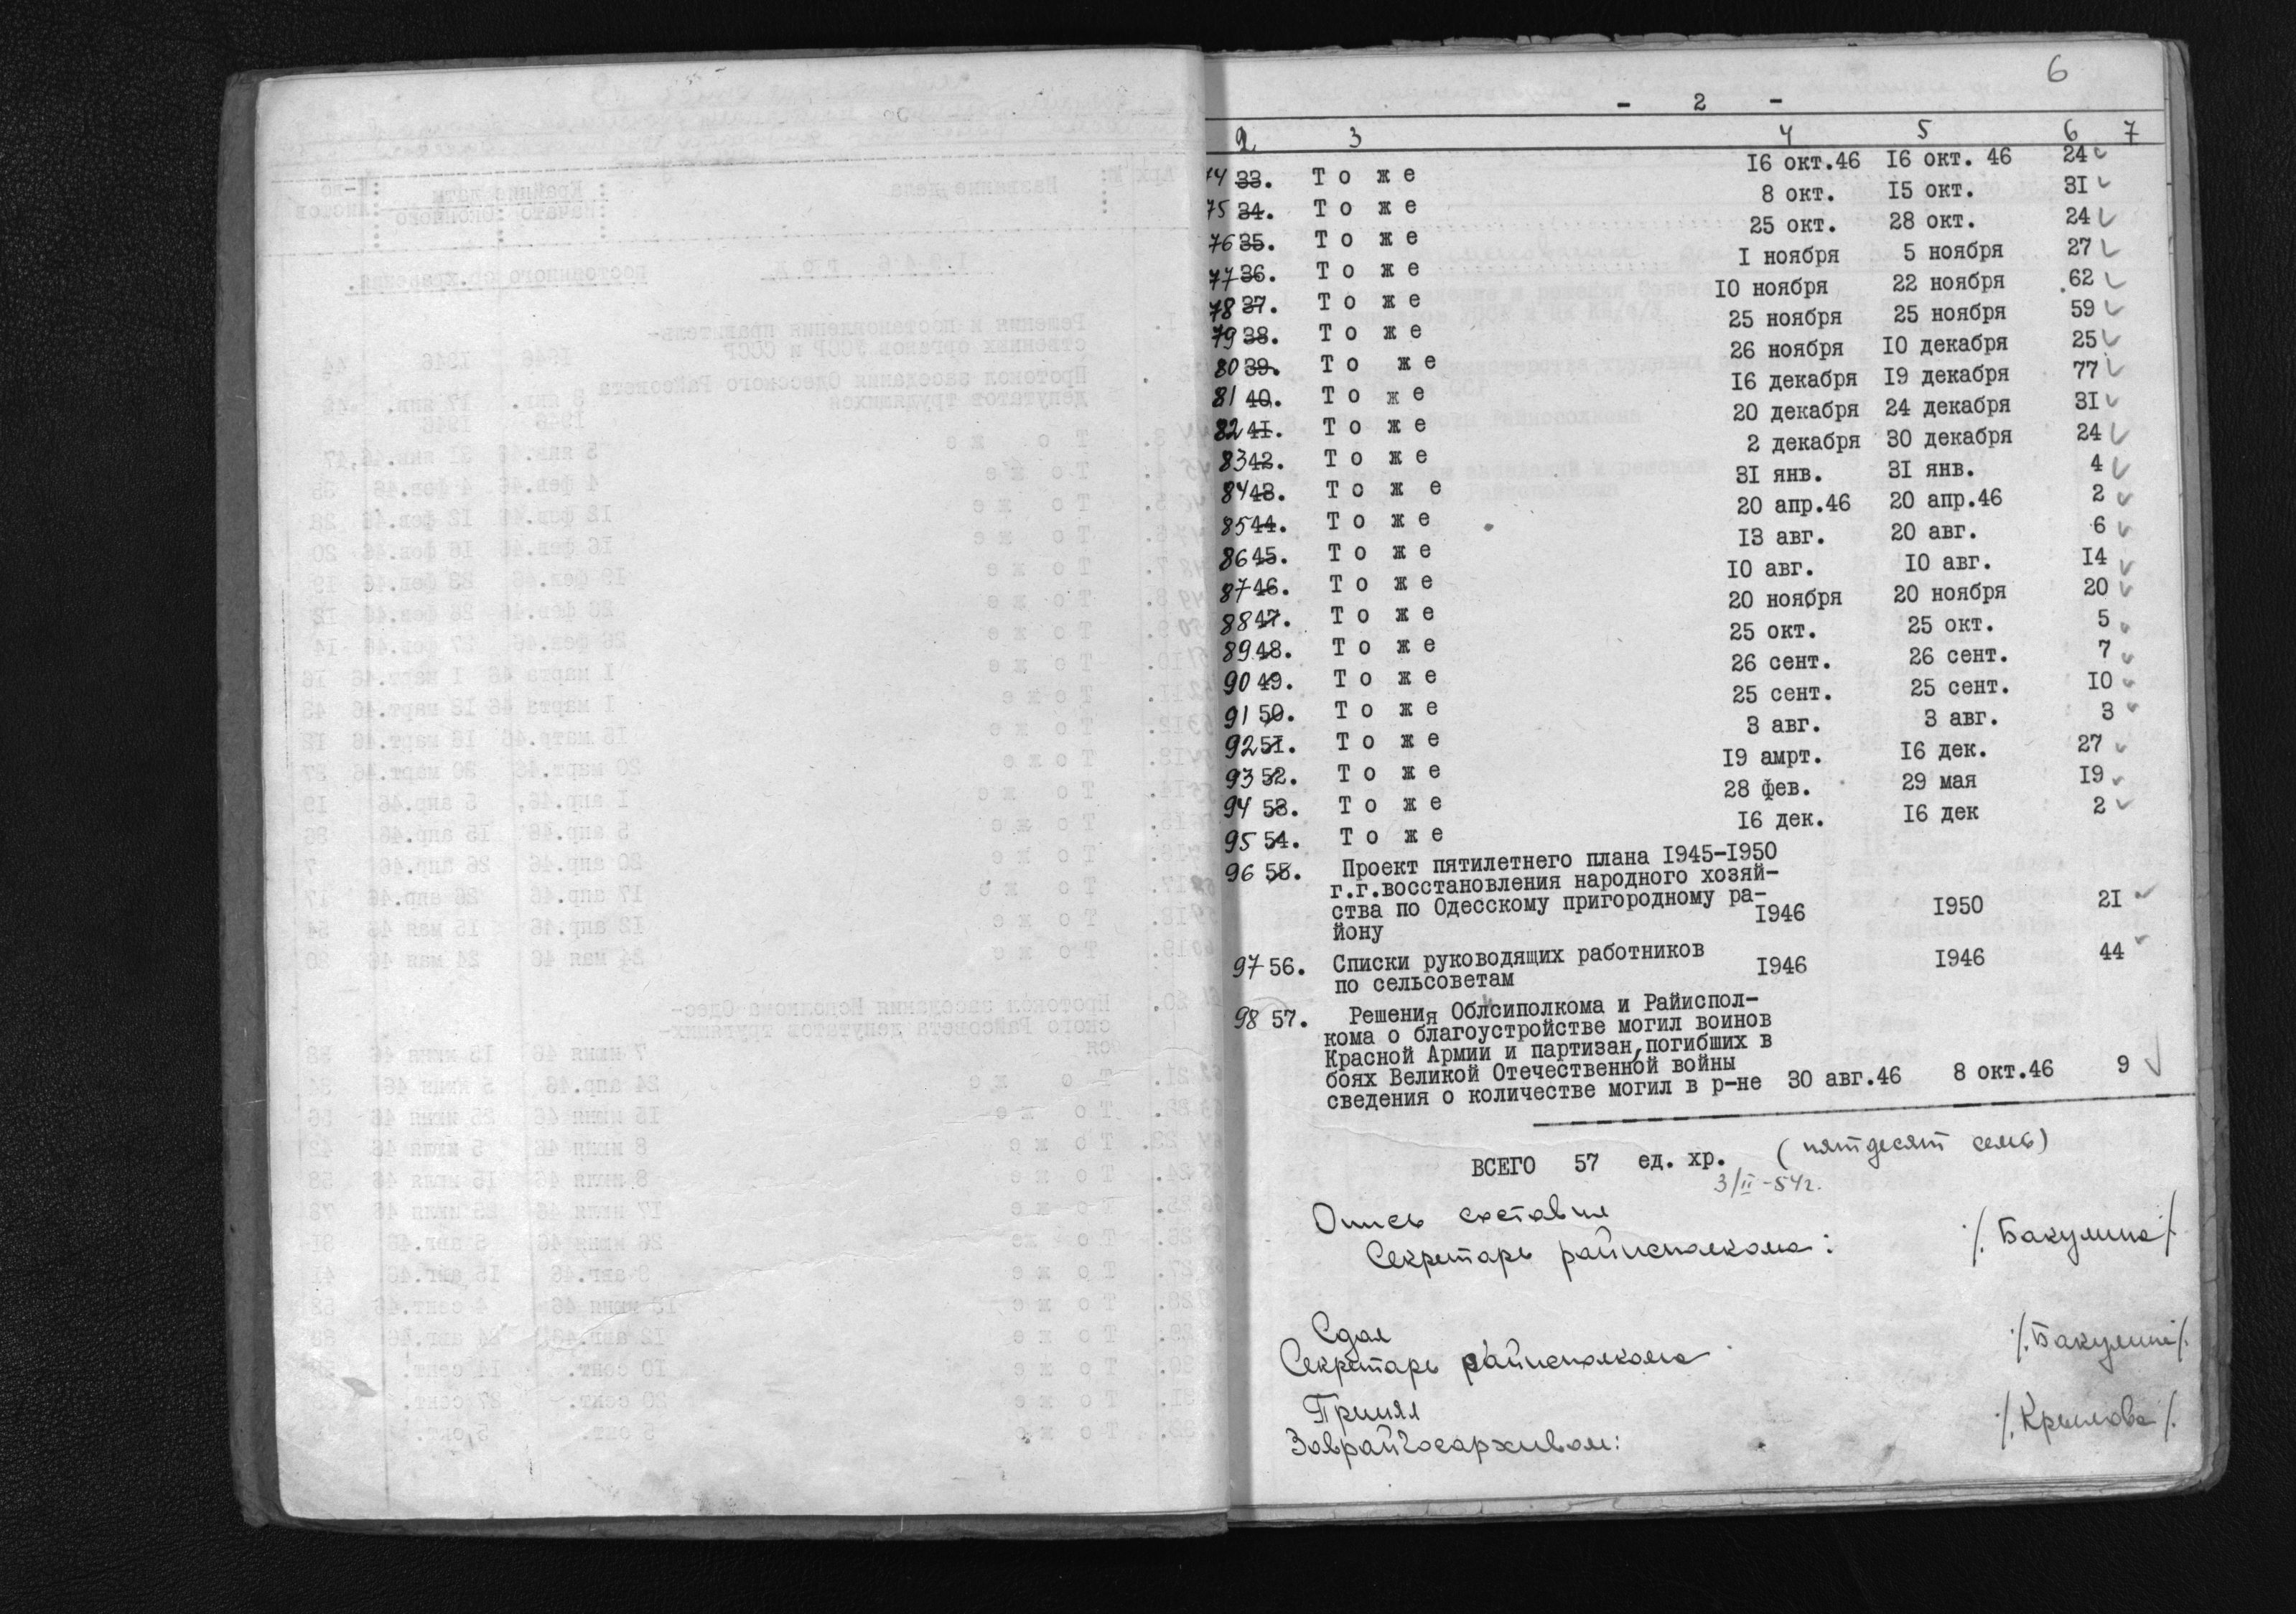 6
- 2 -
2 3 4 5 6 7
74 33. Т о ж е 16 окт.46 16 окт. 46 24
75 34. Т о ж е 8 окт. 15 окт. 31
76 35. Т о ж е 25 окт. 28 окт. 24
77 36. Т о ж е 1 ноября 5 ноября 27
78 37. Т о ж е 10 ноября 22 ноября 62
79 38. Т о ж е 25 ноября 25 ноября 59
80 39. Т о ж е 26 ноября 10 декабря 25
81 40. Т о ж е 16 декабря 19 декабря 77
82 41. Т о ж е 20 декабря 24 декабря 31
83 42. Т о ж е 2 декабря 30 декабря 24
84 43. Т о ж е 31 янв. 31 янв. 4
85 44. Т о ж е 20 апр.46 20 апр.46 2
86 45. Т о ж е 13 авг. 20 авг. 6
87 46. Т о ж е 10 авг. 10 авг. 14
88 47. Т о ж е 20 ноября 20 ноября 20
89 48. Т о ж е 25 окт. 25 окт. 5
90 49. Т о ж е 26 сент. 26 сент. 7
91 50. Т о ж е 25 сент. 25 сент. 10
92 51. Т о ж е 3 авг. 3 авг. 3
93 52. Т о ж е 19 амрт. 16 дек. 27
94 53. Т о ж е 28 фев. 29 мая 19
95 54. Т о ж е 16 дек. 16 дек 2
96 55. Проект пятилетнего плана 1945-1950
г.г.восстановления народного хозяй-
ства по Одесскому пригородному ра-
йону 1946 1950 21
97 56. Списки руководящих работников
по сельсоветам 1946 1946 44
98 57. Решения Облсиполкома и Райиспол-
кома о благоустройстве могил воинов
Красной Армии и партизан,погибших в
боях Великой Отечественной войны
сведения о количестве могил в р-не 30 авг.46 8 окт.46 9
ВСЕГО 57 ед. хр. (пятдесят семь)
3/II-54г.
Опись составил
Секретарь райисполкома: /. Бакулина/
Сдал
Секретарь райисполкома /.Бакулина/.
Принял
Заврайгосархивом: /.Крылова/.